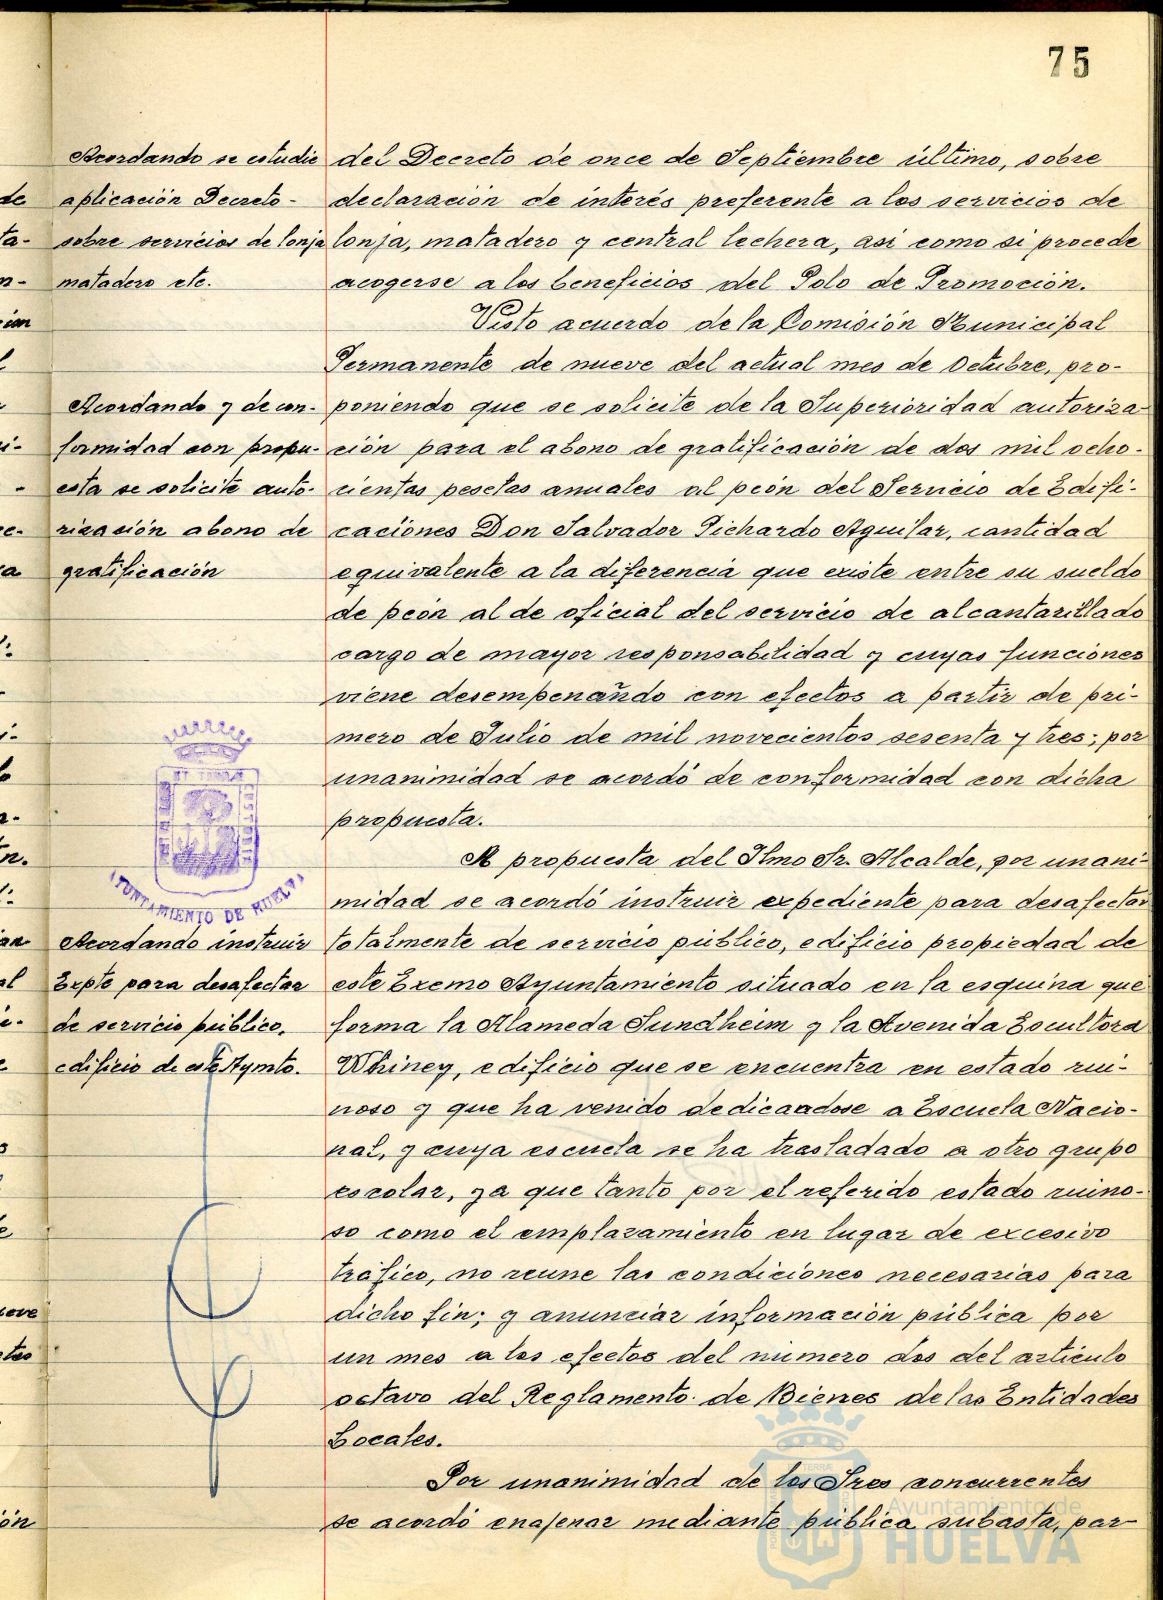 75
Acordando se estudie
aplicación Decreto-
sobre servicios de lonja
matadero etc.
del Decreto de once de Septiembre último, sobre
declaración de interés preferente a los servicios de
lonja, matadero y central lechera, asi como si procede
acogerse a los beneficios del Polo de Promoción.
Visto acuerdo de la Comisión Municipal
Permanente de nueve del actual mes de Octubre, pro-
Acordando y de con-
formidad con propu-
esta se solicite auto-
rización abono de
gratificación
poniendo que se solicite de la Superioridad autoriza-
ción para el abono de gratificación de dos mil ocho-
cientas pesetas anuales al peón del Servicio de Edifi-
caciónes Don Salvador Pichardo Aguilar, cantidad
equivalente a la diferencia que existe entre su sueldo
de peón al de oficial del servicio de alcantarillado
cargo de mayor responsabilidad y cuyas funciones
viene desempenañdo con efectos a partir de pri-
mero de Julio de mil novecientos sesenta y tres; por
unanimidad se acordó de conformidad con dicha
propuesta.
A propuesta del Ilmo Sr. Alcalde, por unani-
midad se acordó instruir expediente para desafectar
AYUNTAMIENTO DE HUELVA
Acordando instruir
Expte para desafectar
de servicio público,
edificio de este Aymto.
totalmente de servicio público, edificio propiedad de
este Excmo Ayuntamiento situado en la esquina que
forma la Alameda Sundheim y la Avenida Escultora
Whiney, edificio que se encuentra en estado rui-
noso y que ha venido dedicandose a Escuela Nacio-
nal, y cuya escuela se ha trasladado a otro grupo
escolar, ya que tanto por el referido estado ruino-
so como el emplazamiento en lugar de excesivo
tráfico, no reune las condiciónes necesarias para
dicho fin; y anunciar información pública por
un mes a los efectos del número dos del artículo
octavo del Reglamento de Bienes de las Entidades
Locales.
Por unanimidad de los Sres concurrentes
se acordó enajenar mediante pública subasta, par-
Ayuntamiento de
HUELVA